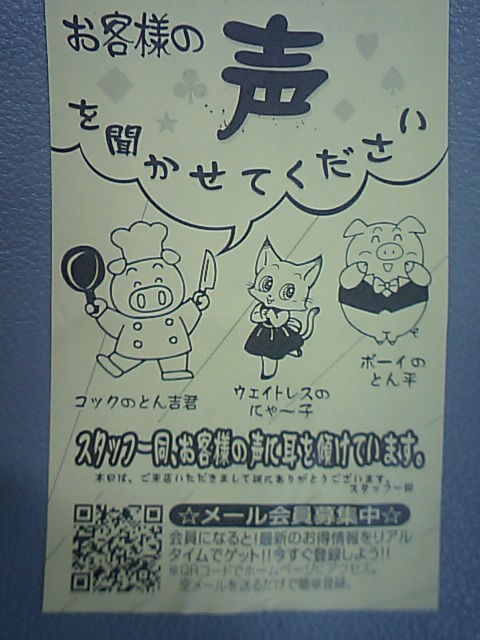 お客様の
声
を聞かせてください
コックのとん吉君
ウェイトレスの
にゃ〜子
ボーイの
とん平
スタッフ一同、お客様の声に耳を傾けています。
本日は、ご来店いただきまして誠にありがとうございます。
スタッフ一同
☆メール会員募集中☆
会員になると!最新のお得情報をリアル
タイムでゲット!!今すぐ登録しよう!!
※QRコードでホームページにアクセス。
空メールを送るだけで簡単登録。